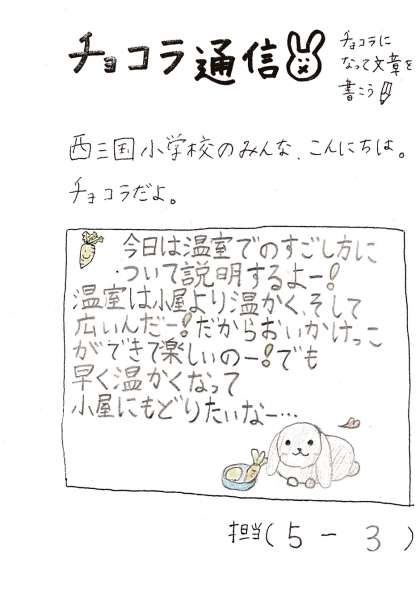 チョコラ通信
チョコラに
なって文章を
書こう
西三国小学校のみんな、こんにちは。
チョコラだよ。
今日は温室でのすごし方に
ついて説明するよー!
温室は小屋より温かく、そして
広いんだー!だからおいかけっこ
ができて楽しいのー!でも
早く温かくなって
小屋にもどりたいなー…
担当(5-3)